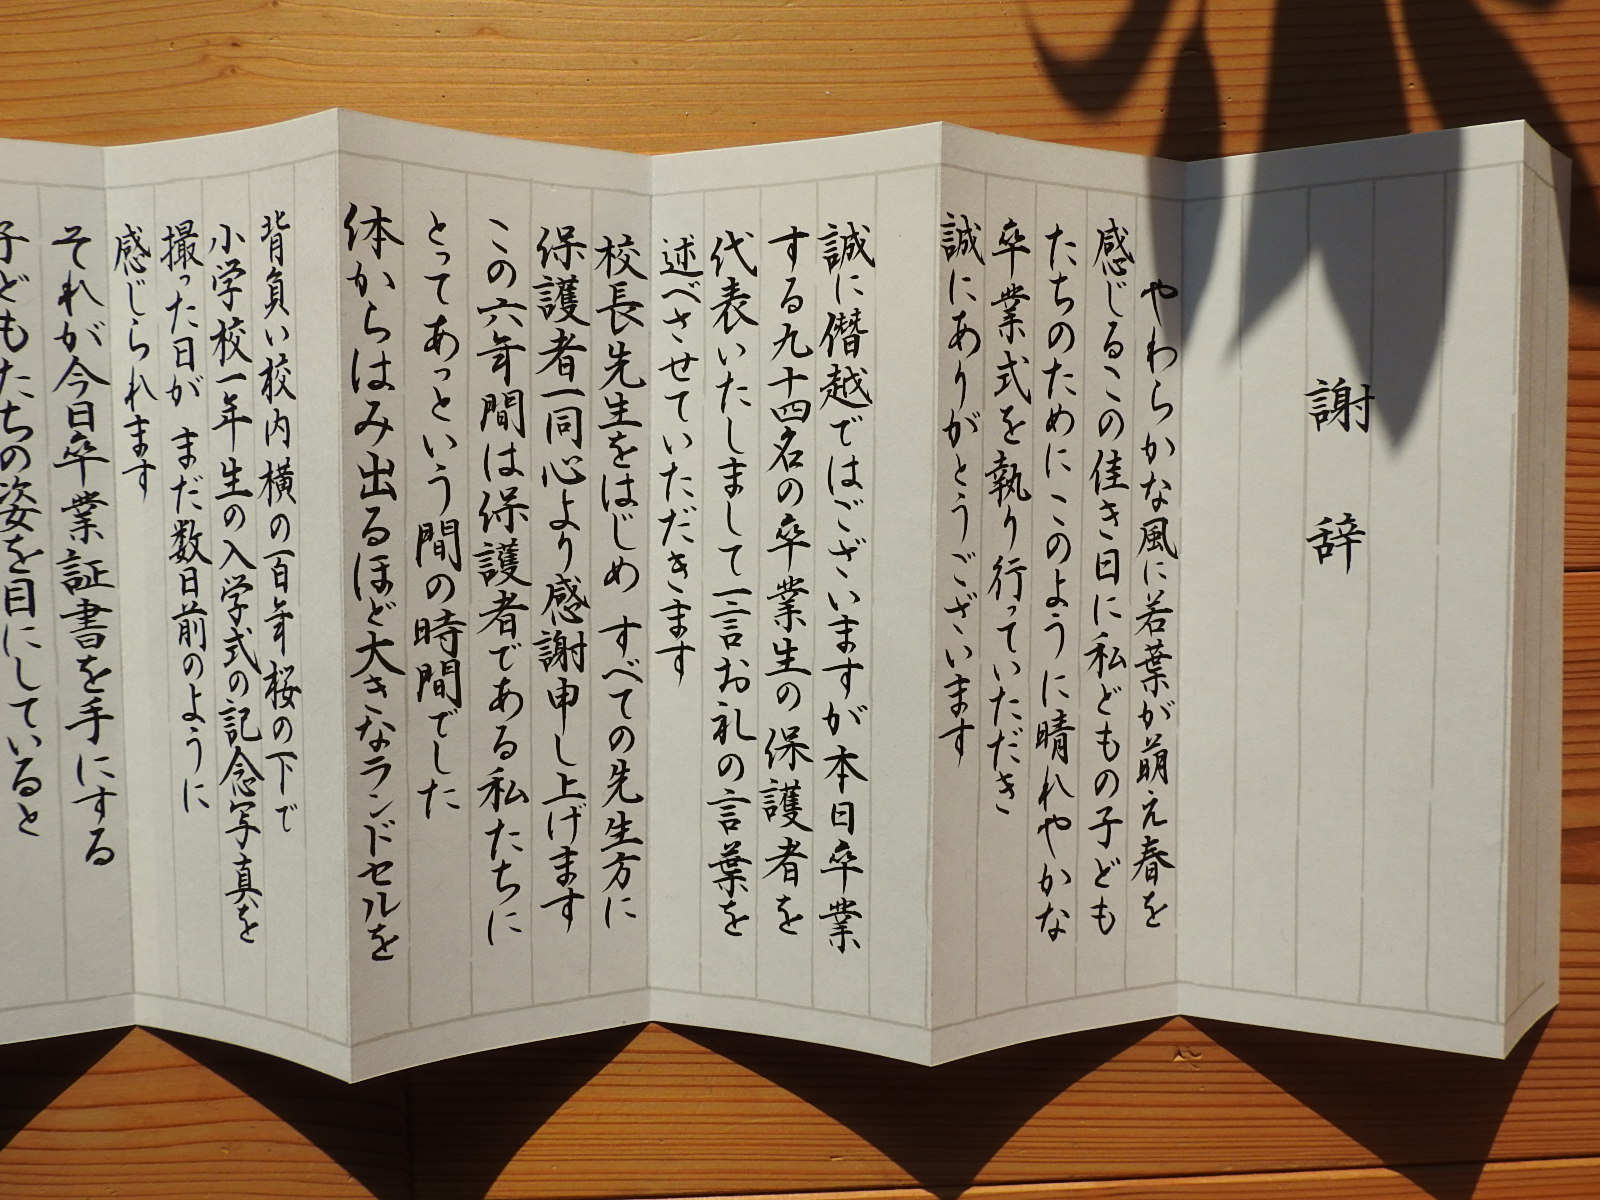 謝辞
やわらかな風に若葉が萌え春を
感じるこの佳き日に私どもの子ども
たちのためにこのように晴れやかな
卒業式を執り行っていただき
誠にありがとうございます
誠に僭越ではございますが本日卒業
する九十四名の卒業生の保護者を
代表いたしまして一言お礼の言葉を
述べさせていただきます
校長先生をはじめすべての先生方に
保護者一同心より感謝申し上げます
この六年間は保護者である私たちに
とってあっという間の時間でした
体からはみ出るほど大きなランドセルを
背負い校内横の百年桜の下で
小学校一年生の入学式の記念写真を
撮った日がまだ数日前のように
感じられます
それが今日卒業証書を手にする
子どもたちの姿を目にしていると